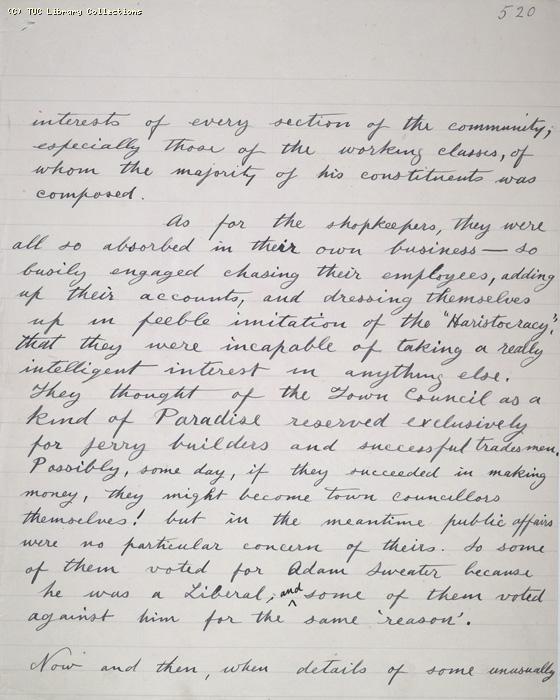 (C) TUC Library Collections
520
interests of every section of the community;
especially those of the working classes, of
whom the majority of his constituents was
composed.
As for the shopkeepers, they were
all so absorbed in their own business — so
busily engaged chasing their employees, adding
up their accounts, and dressing themselves
up in feeble imitation of the "Haristocracy",
that they were incapable of taking a really
intelligent interest in anything else.
They thought of the Town Council as a
kind of Paradise reserved exclusively
for jerry builders and successful tradesmen.
Possibly, some day, if they succeeded in making
money, they might become town councillors
themselves! but in the meantime public affairs
were no particular concern of theirs. So some
of them voted for Adam Sweater because
he was a Liberal, and some of them voted
against him for the same 'reason'.
Now and then, when details of some unusually